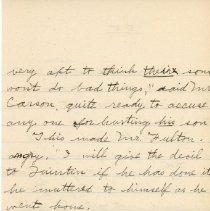 very apt to think their sons
won't do bad things," said Mr
Carson, quite ready to accuse
any one for hurting his son
This made Mr. Fulton
angry. "I will give the devil
to Quentin if he has done it
he muttered to himself as he
went home.